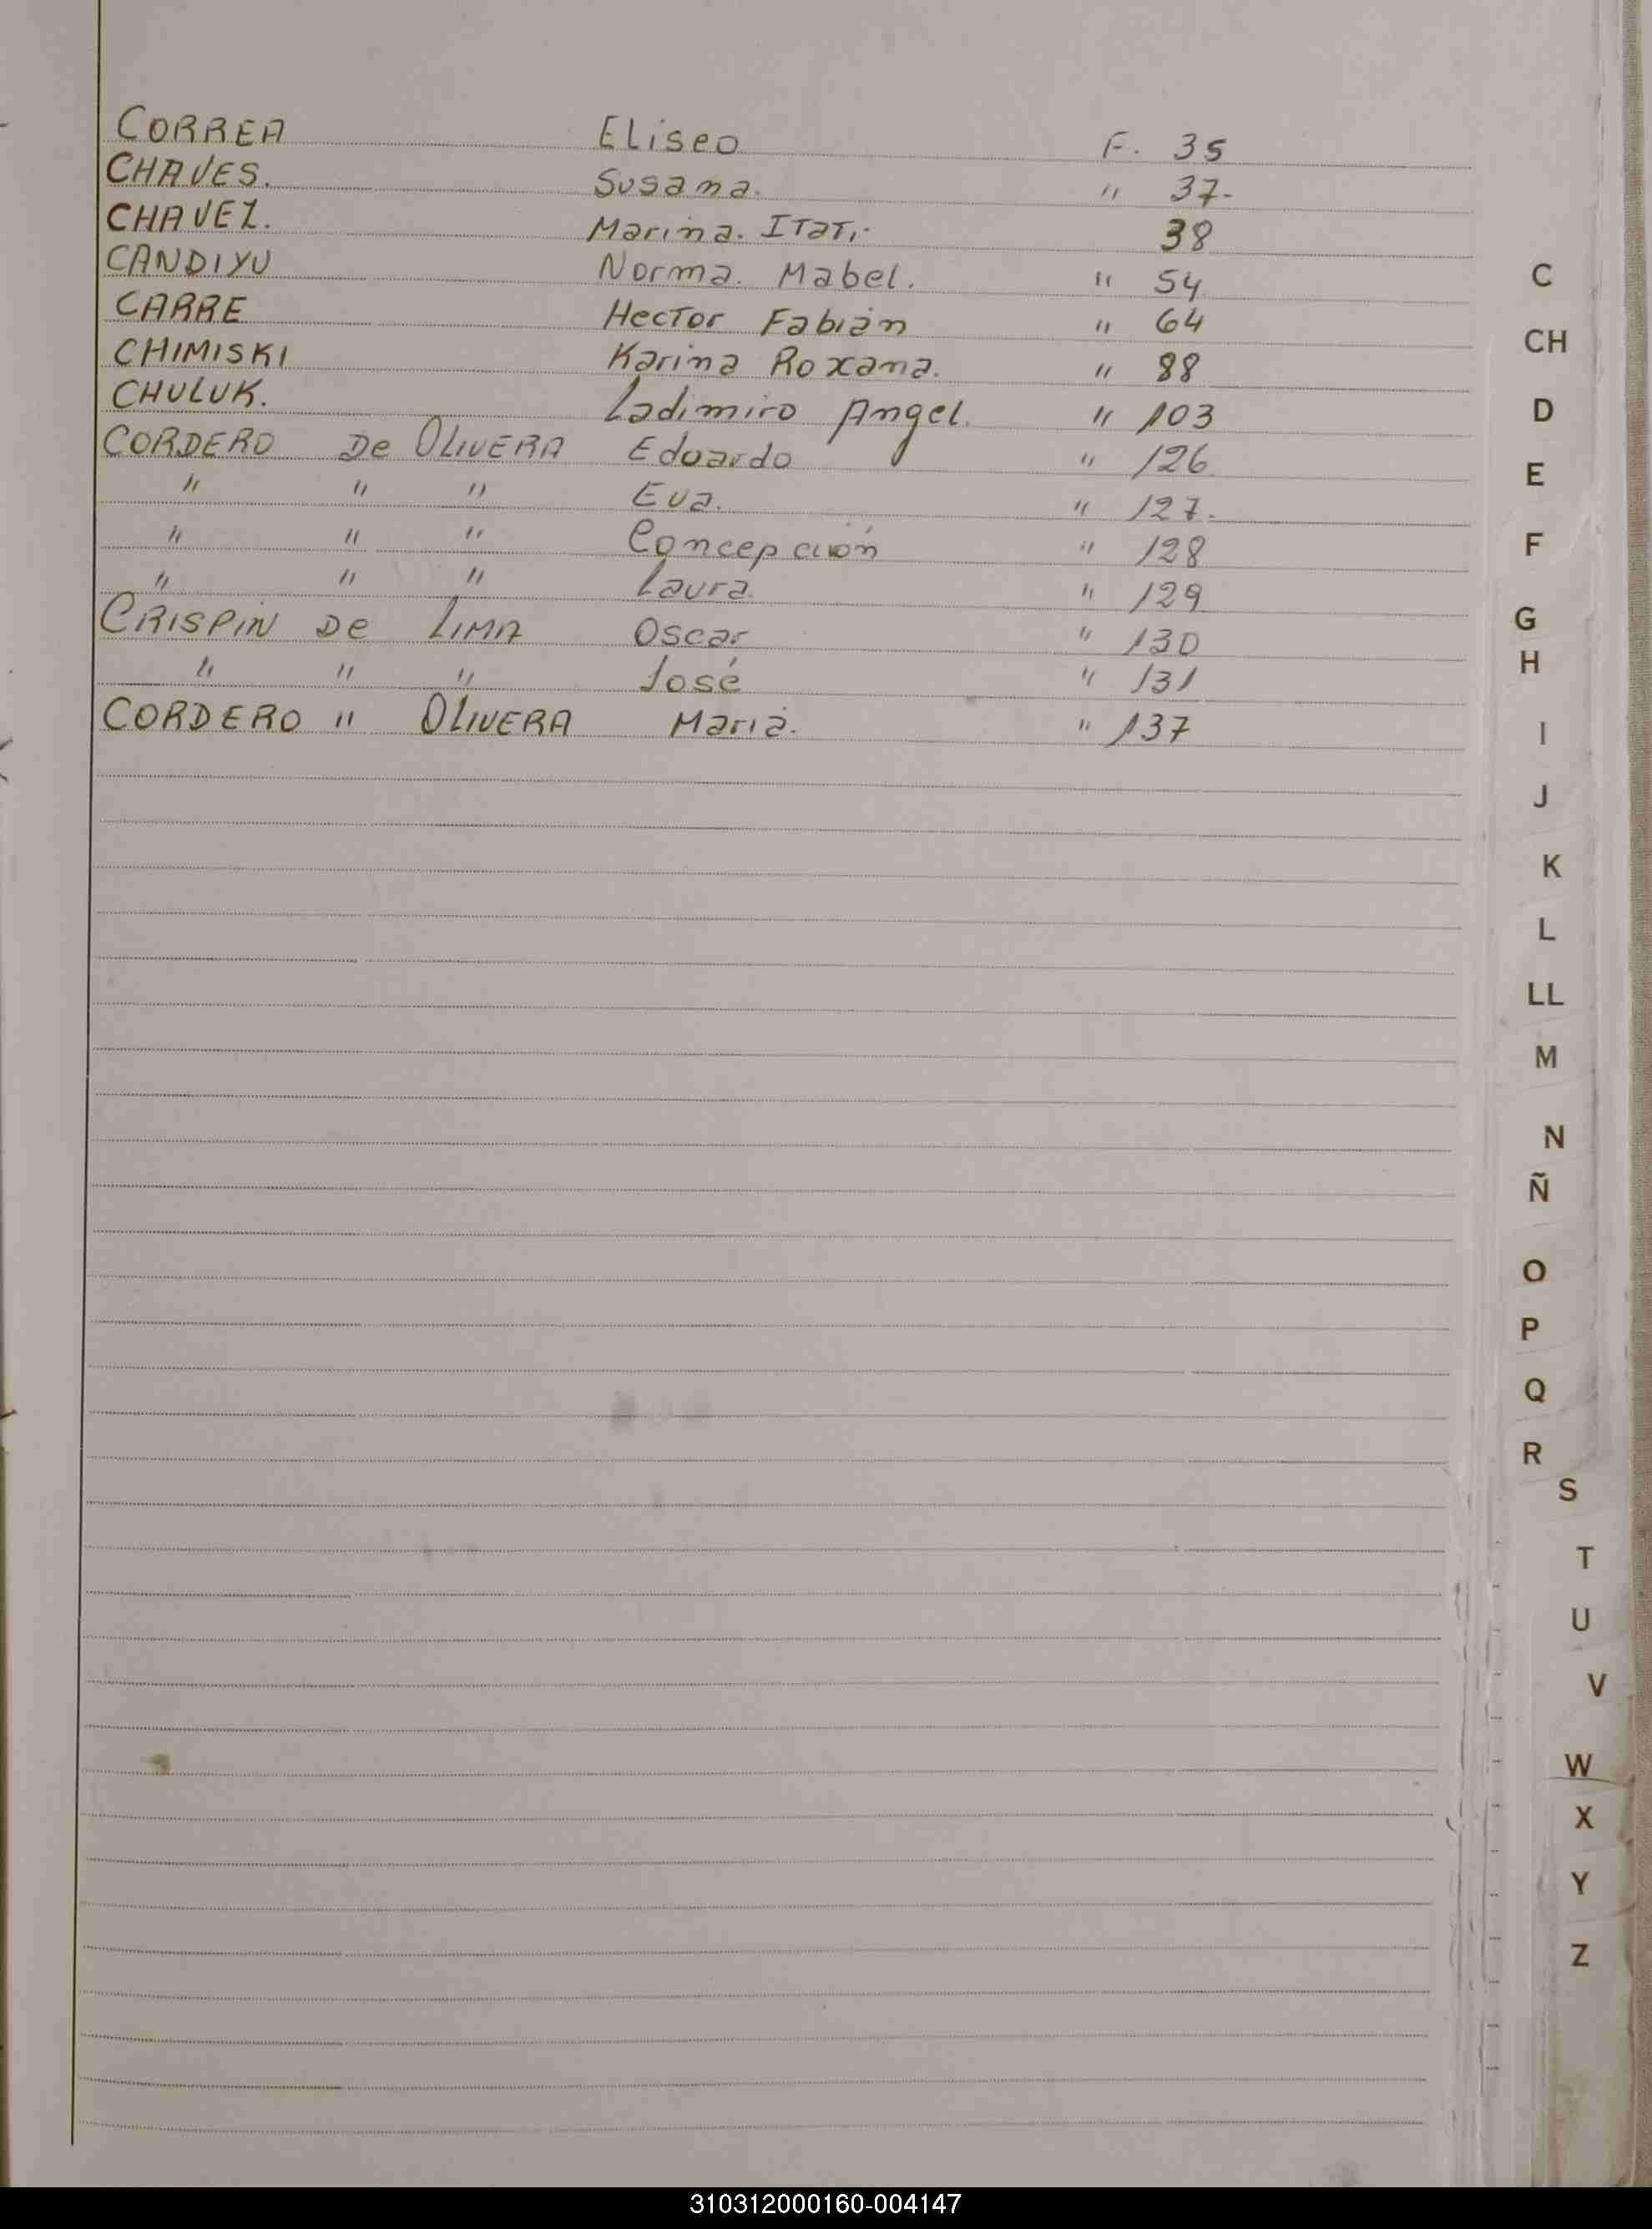 CORREA Eliseo F. 35
CHAVES. Susana. " 37-
CHAVEZ. Marina. Itati. 38
CANDIYU Norma. Mabel. " 54
CARRE Hector Fabián " 64
CHIMISKI Karina Roxana. " 88
CHULUK. Ladimiro Angel. " 103
CORDERO De OLIVERA Eduardo " 126
" " " Eva. " 127.
" " " Concepción " 128
" " " Laura. " 129
CRISPIN De LIMA Oscar " 130
" " " José " 131
CORDERO " OLIVERA Maria. " 137
C
CH
D
E
F
G
H
I
J
K
L
LL
M
N
Ñ
O
P
Q
R
S
T
U
V
W
X
Y
Z
310312000160-004147